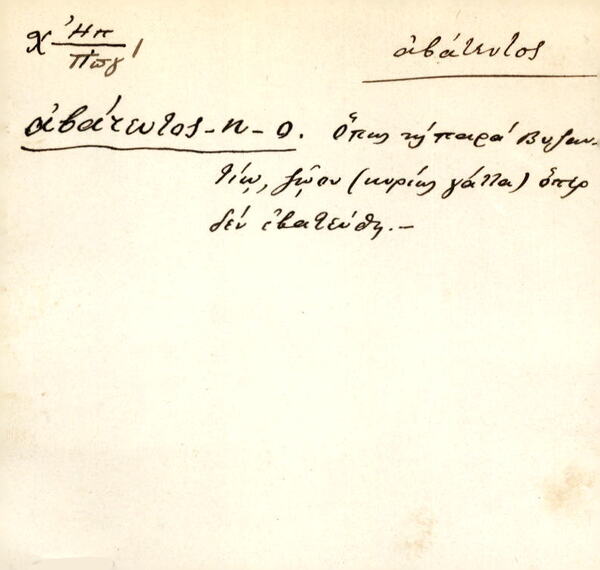 χ Ἠπ / Πωγ 1
ἀβάτευτος
ἀβάτευτος-η-ο. Ὅπως παρά Βυζαν-
τίῳ, ζῷον (κυρίως γάττα) ὅπερ
δέν ἐβατεύθη.-